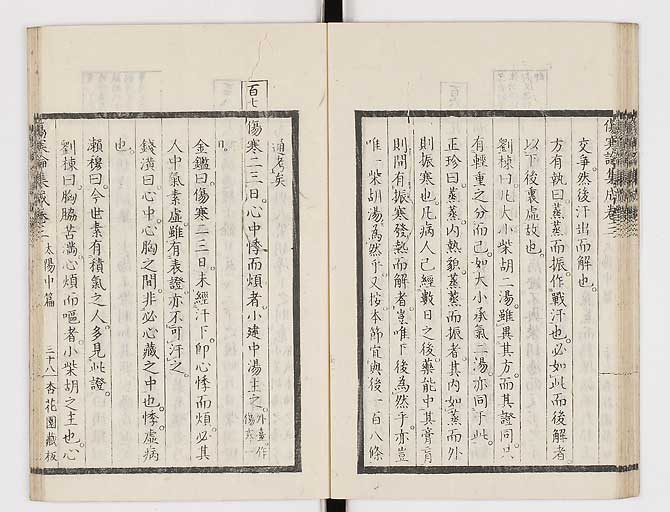 傷寒論集成卷三
交爭然後汗出而解也
方有執曰蒸蒸而振作戰汗也必如此而後解者
以下後裏虛故也
劉棟曰凡大小柴胡二湯雖異其方而其證同只
有輕重之分而已如大小承氣二湯亦同于此
正珍曰蒸蒸内熱貌蒸蒸而振者其内如蒸而外
則振寒也凡病人已經數日之後藥能中其膏肓
則間有振寒發熱而解者豈唯下後爲然乎亦豈
唯一柴胡湯爲然乎又按本節宜與後一百八條
通考矣
百七
傷寒二三日心中悸而煩者小建中湯主之外臺作傷寒一
日
金鑑曰傷寒二三日未經汗下即心悸而煩必其
人中氣素虛雖有表證亦不可汗之
錢潢曰心中心胸之間非必心藏之中也悸虛病
也
瀨穆曰今世素有積氣之人多見此證
劉棟曰胸脇苦滿心煩而嘔者小柴胡之主也心
傷寒論集成卷三 太陽中篇 二十八 杏花園藏板